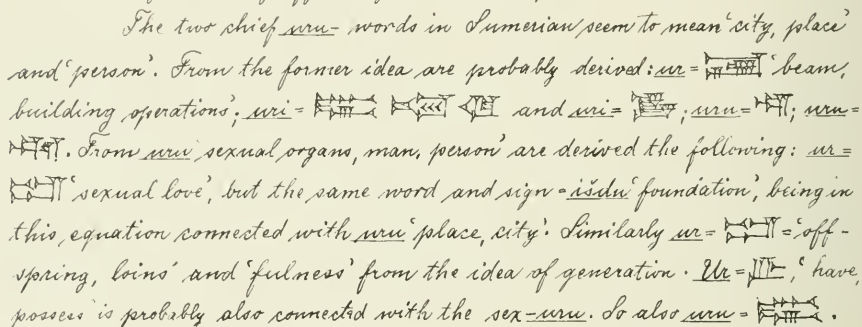 The two chief uru- words in Sumerian seem to mean 'city, place'
and 'person'. From the former idea are probably derived: ur = 'beam,
building operations'; uri = and uri = ; uru = ; uru =
. From uru 'sexual organs, man, person' are derived the following: ur =
'sexual love', but the same word and sign = išdu 'foundation', being in
this equation connected with uru 'place, city'. Similarly ur = = 'off-
spring, loins' and 'fulness' from the idea of generation. Ur = , 'have,
possess' is probably also connected with the sex-uru. So also uru = .